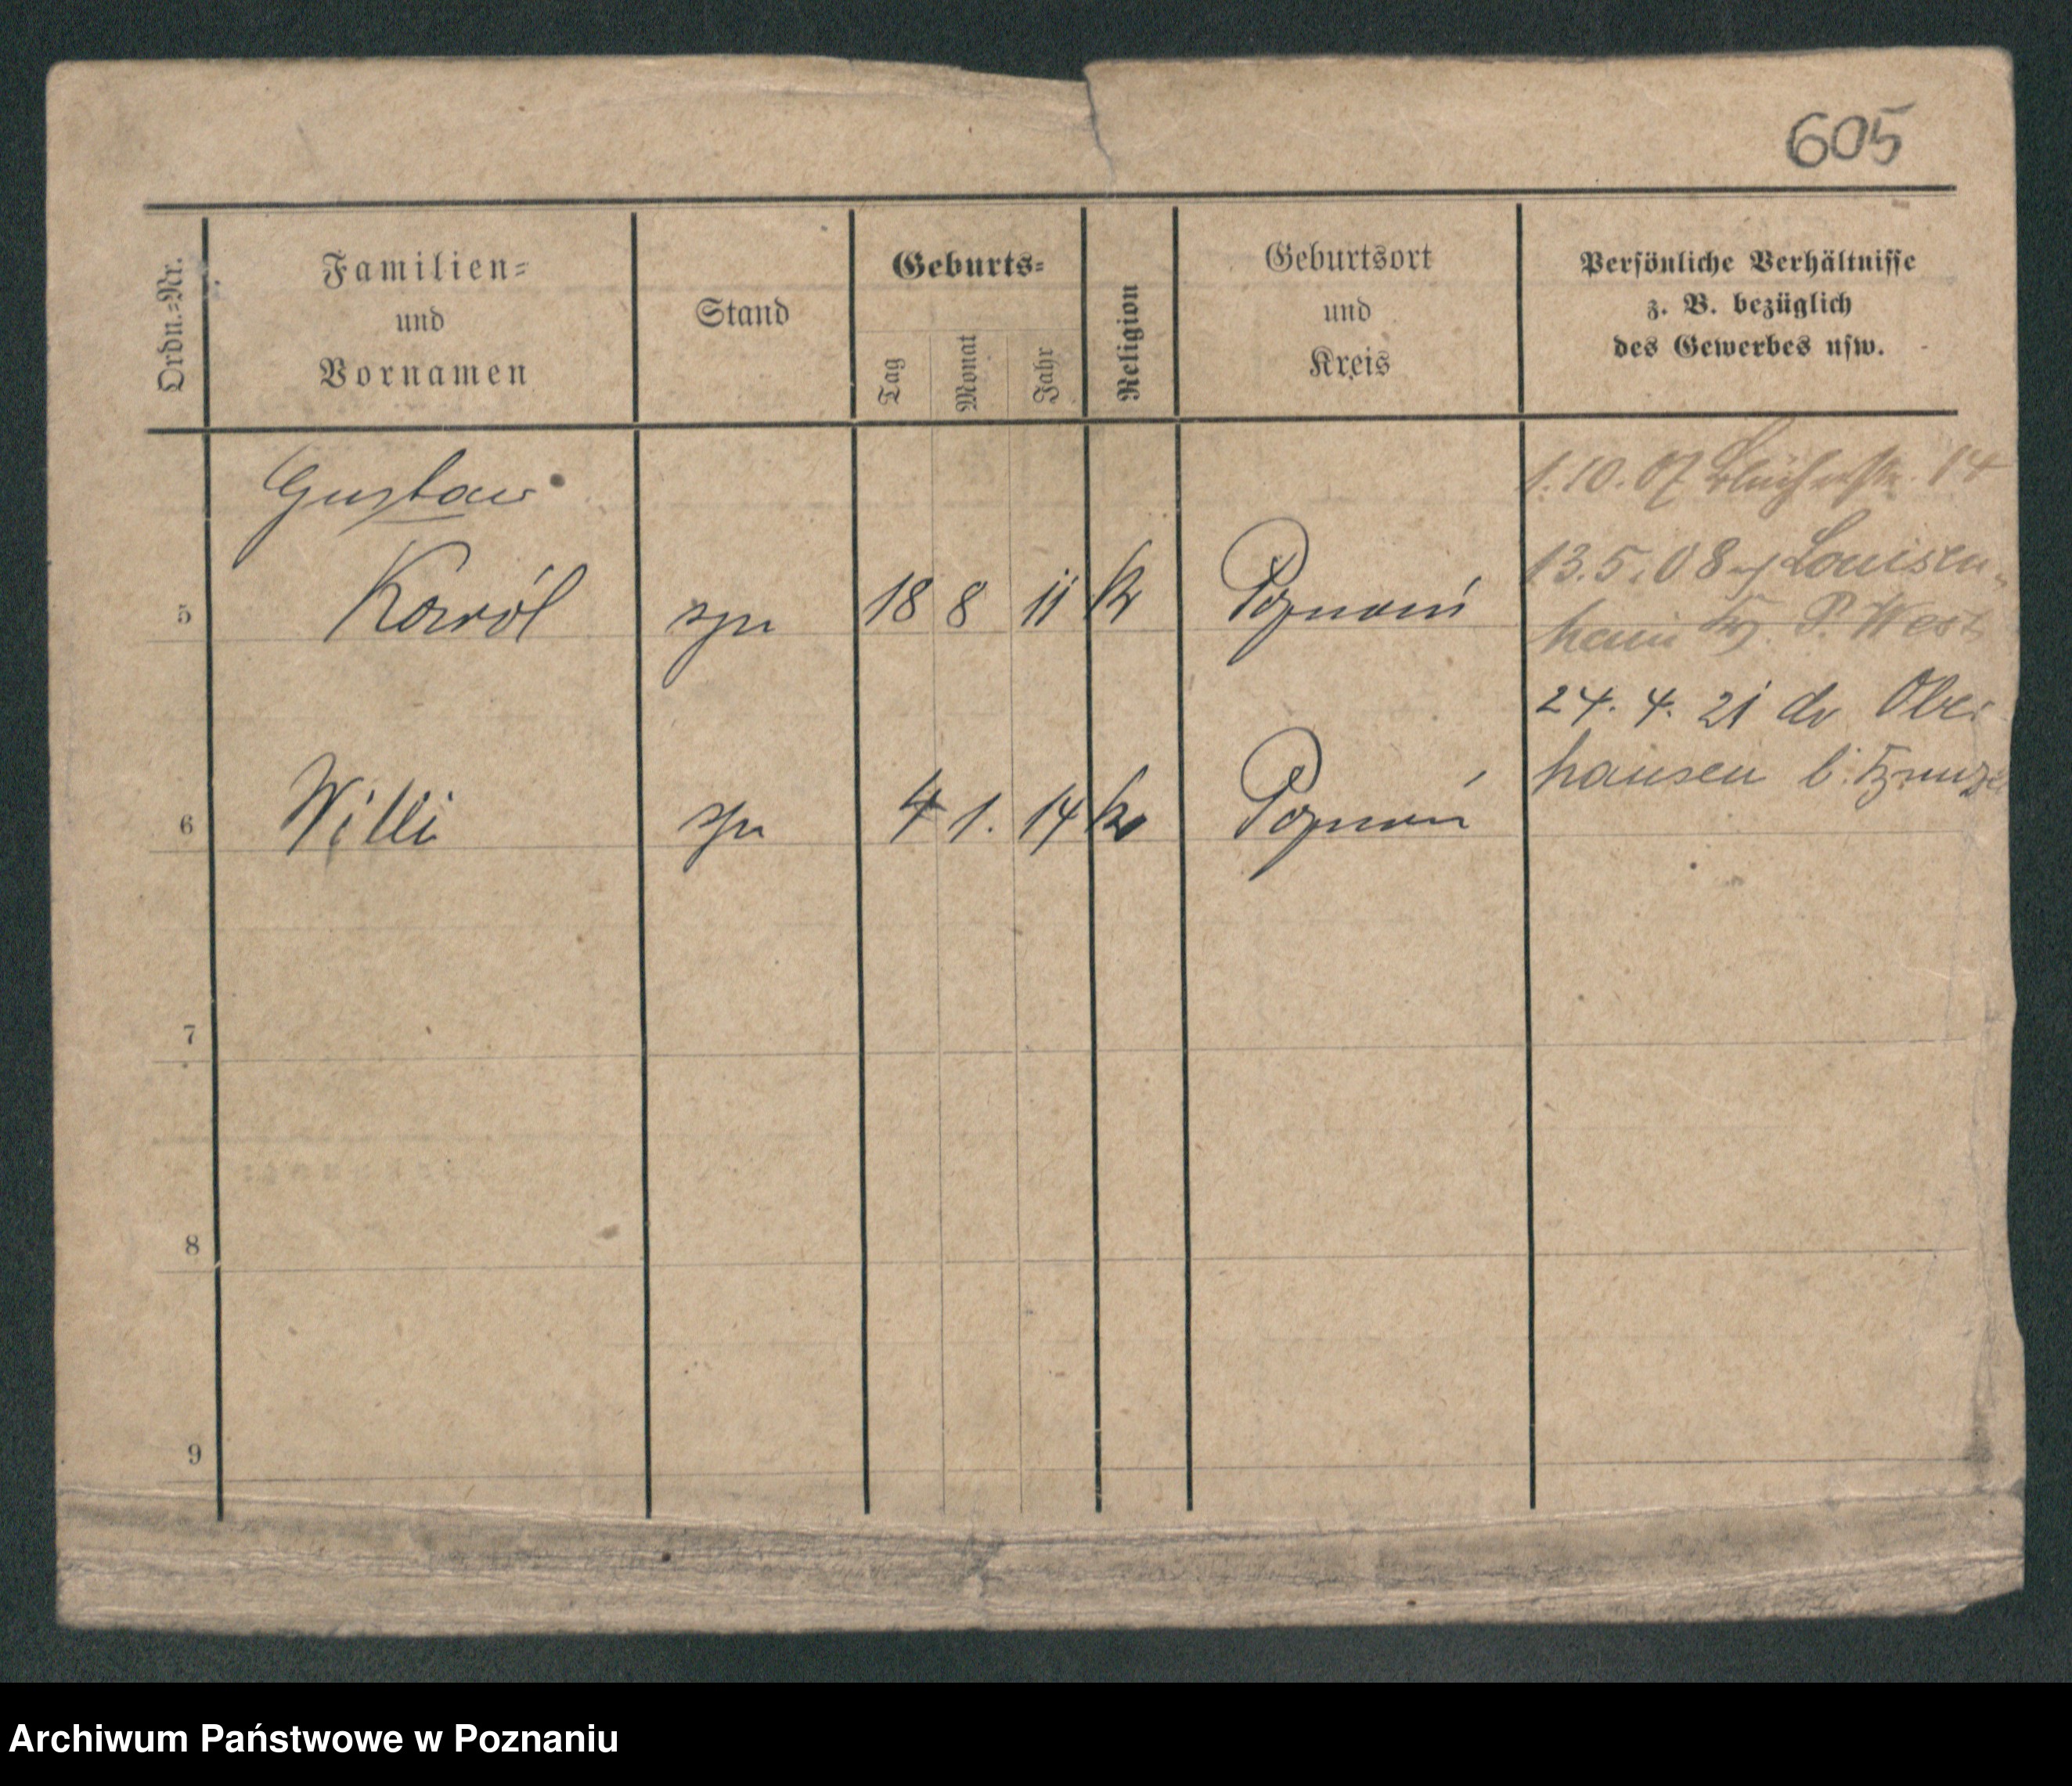 605
Ordn.-Nr.
Familien-
und
Vornamen
Stand
Geburts-
Tag
Monat
Jahr
Religion
Geburtsort
und
Kreis
Persönliche Verhältnisse
z. B. bezüglich
des Gewerbes usw.
Gustaw
5 Karól syn 18 8 11 k Poznań
6 Willi syn 4 1. 14 k Poznań
1.10.07 Blücherstr. 14
13.5.08 Louisen-
hain P. West
24. 4. 21 do Ober
hausen b.
7
8
9
Archiwum Państwowe w Poznaniu